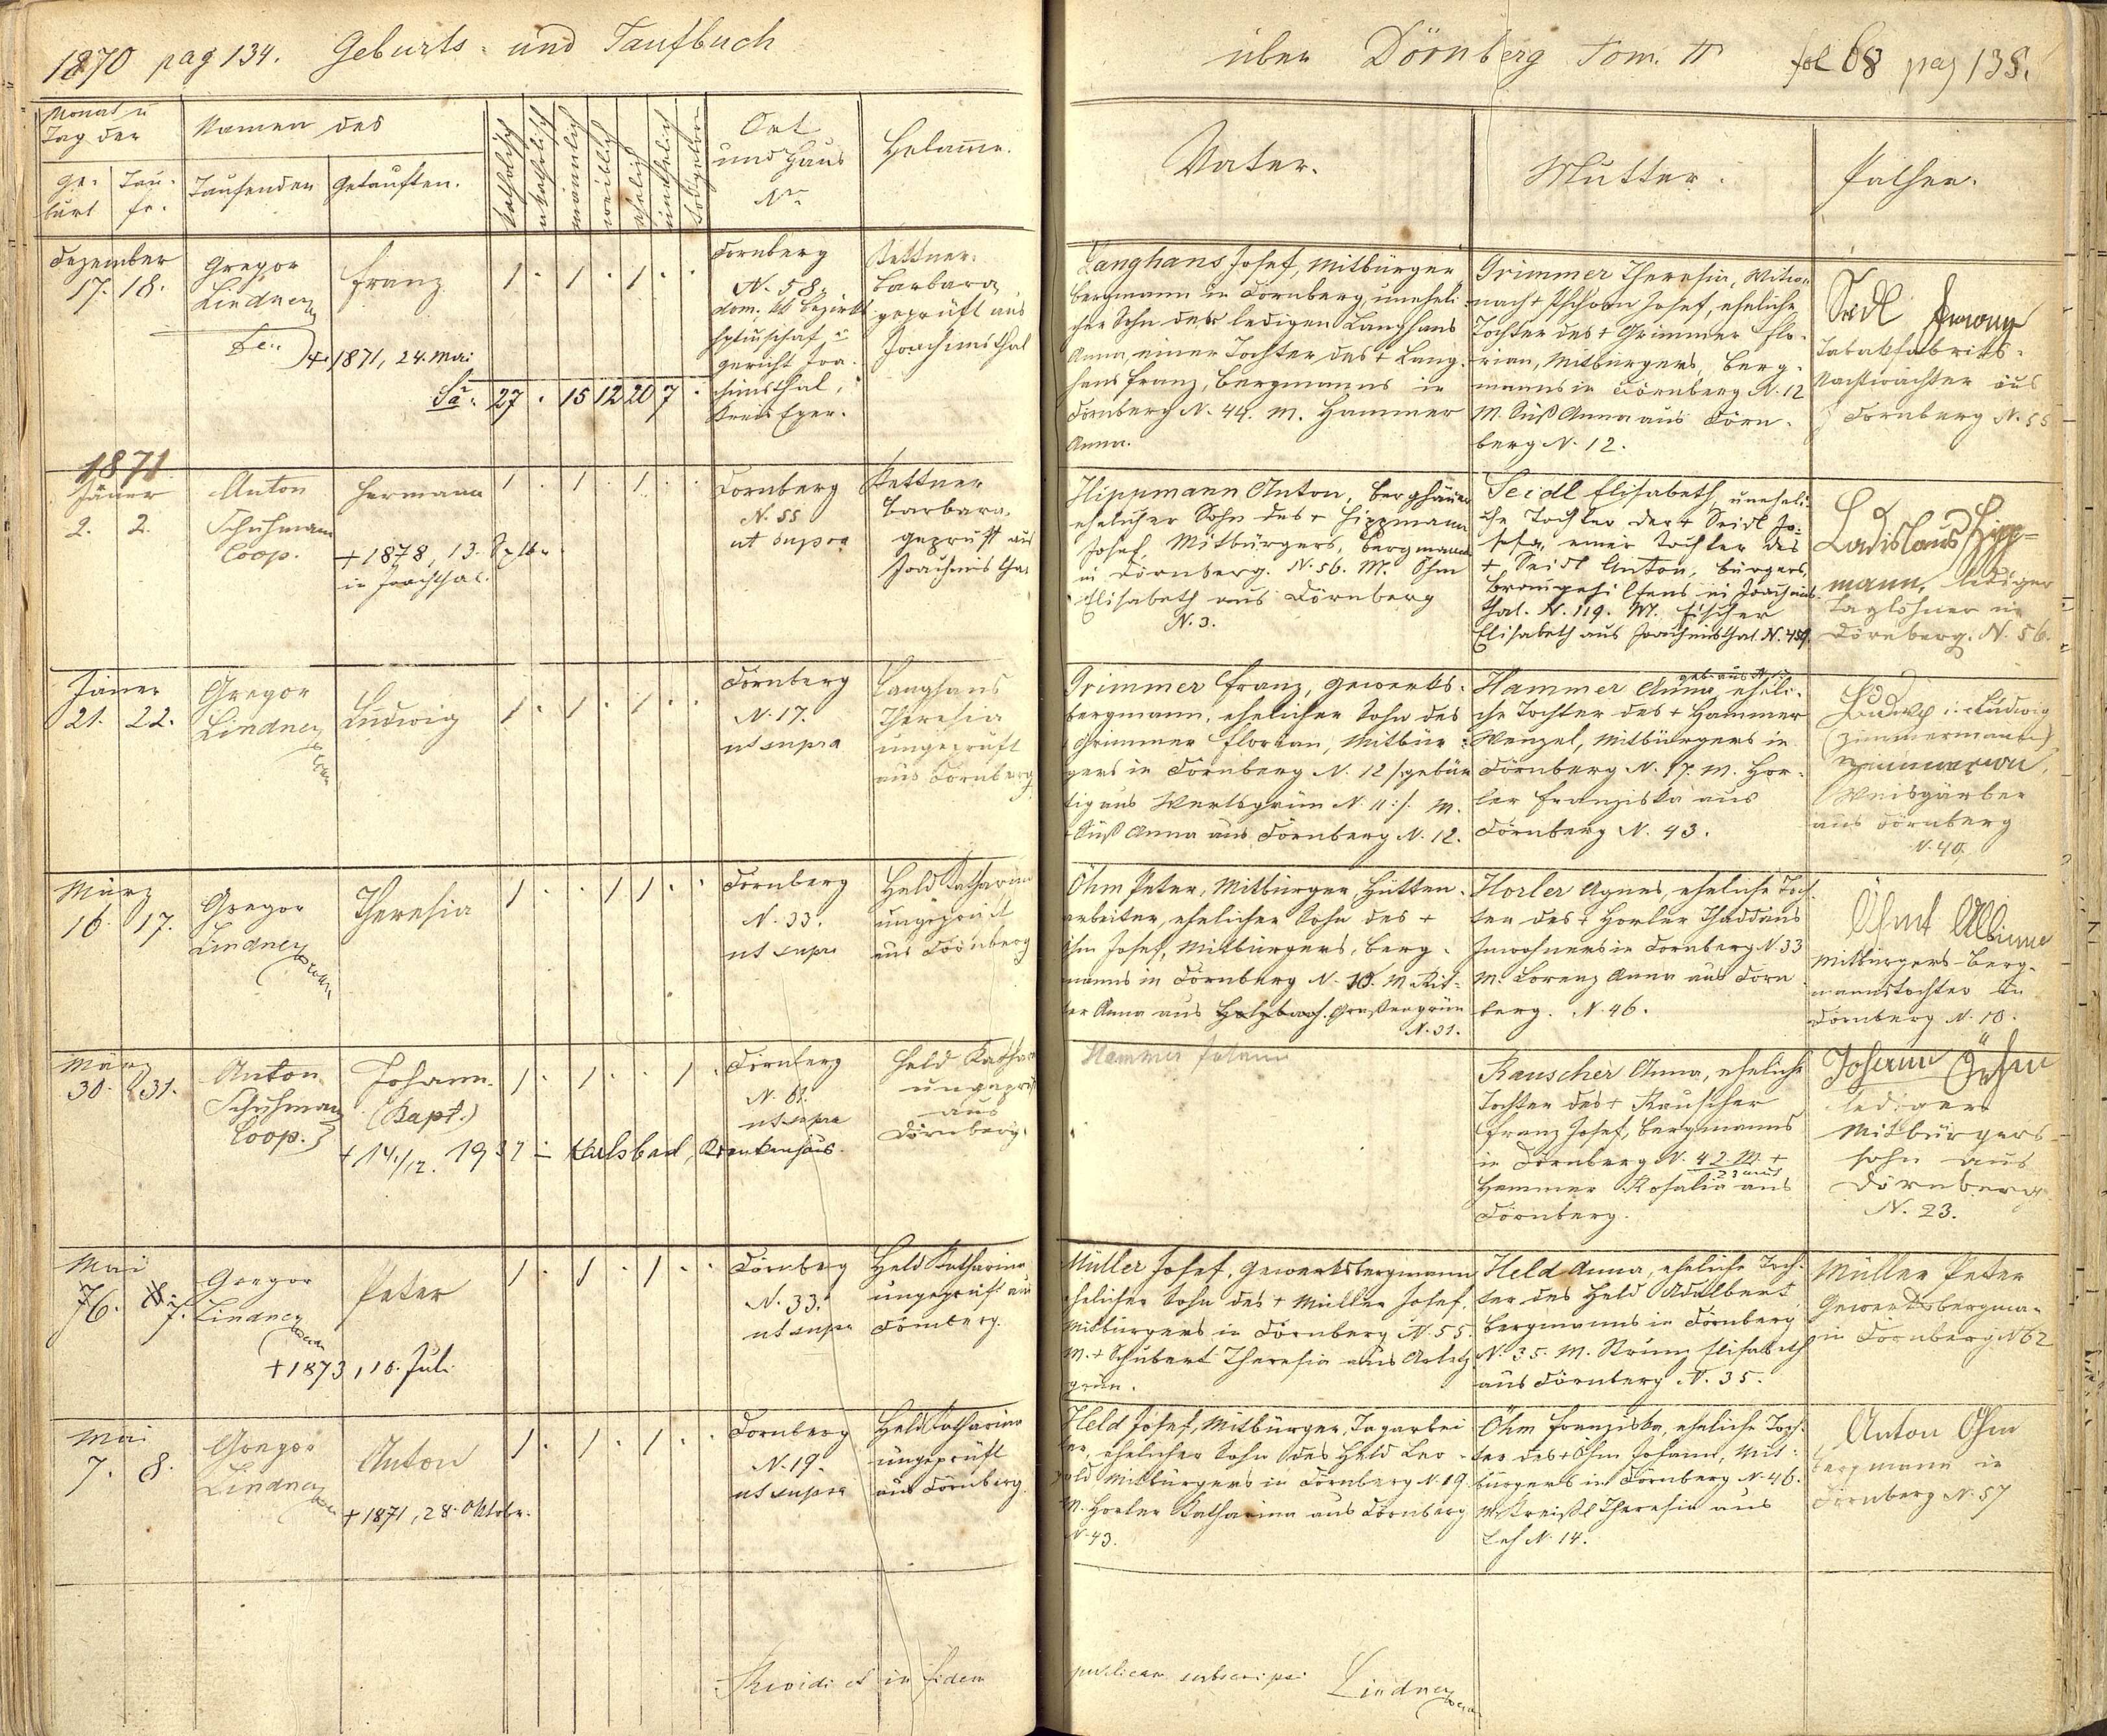 1870 pag 134. Geburts- und Taufbuch
über Dörnberg Tom. II fol 68 pag 135.
Monat u
Tag der
Namen des
Ge-
burt
Tau-
fe.
Taufenden
Getauften.
katholisch
akatholisch
männlich
weiblich
ehelich
unehelich
todtgeboren
Ort
und Haus
Nr
Hebamme.
Vater.
Mutter.
Pathen.
Dezember
17. 18.
Gregor
Lindner
Franz
+ 1871, 24. Mai
1 . 1 . 1 . .
Dörnberg
N. 58.
gericht Joa-
chimsthal,
Kreis Eger.
Sa. 27 . 15 12 20 7 .
Kettner
Barbara
geprüft aus
Joachimsthal
Langhans Josef, Mitbürger
Bergmann in Dörnberg, uneheli-
cher Sohn der ledigen Langhans
Anna, einer Tochter des + Lang-
hans Franz, Bergmanns in
Dörnberg N. 44. M. Hammer
Anna.
Grimmer Theresia, Witwe
nach + Josef, eheliche
Tochter des + Grimmer Flo-
rian, Mitbürgers, Berg-
manns in Dörnberg N. 12
M. Süß Anna aus Dörn-
berg N. 12.
Tabakfabriks-
Nachtwächter aus
Dörnberg N. 55
1871
Jäner
2. 2.
Anton
Schuhmann
Coop.
Hermann
+ 1878, 13. Septb.
in Joachthal.
1 . 1 . 1 . .
Dörnberg
N. 55
ut supra
Kettner
Barbara
geprüft aus
Joachimsthal
Hippmann Anton, Berghäuer
ehelicher Sohn des + Hippmann
Josef, Mitbürgers, Bergmann
in Dörnberg. N. 56. M. Öhm
Elisabeth aus Dörnberg
N. 3.
Seidl Elisabeth, uneheli-
che Tochter der + Seidl Jo-
sefa, einer Tochter des
+ Seidl Anton, Bürgers,
in Joachims-
thal. N. 119. M. Fischer
Elisabeth aus Joachimsthal. N. 459.
Ladislaus Hipp-
mann, lediger
Taglöhner in
Dörnberg. N. 56.
Jäner
21. 22.
Gregor
Lindner
Ludwig
1 . 1 . 1 . .
Dörnberg
N. 17.
ut supra
Langhans
Theresia
ungeprüft
aus Dörnberg
Grimmer Franz, Gewerks-
bergmann, ehelicher Sohn des
Grimmer Florian, Mitbür-
gers in Dörnberg N. 12 /: gebür
tig aus N. 11 :/. M.
Süß Anna aus Dörnberg N. 12.
Hammer Anna, eheli-
che Tochter des + Hammer
Wenzel, Mitbürgers in
Dörnberg N. 17. M. Hor-
ler Franziska aus
Dörnberg N. 43.
Ludwig
(Zimmermann)
Weisgärber
aus Dörnberg
N. 40.
März
16. 17.
Gregor
Lindner
Theresia
1 . . 1 1 . .
Dörnberg
N. 33.
ut supra
Held Katharina
ungeprüft
aus Dörnberg
Öhm Peter, Mitbürger, Hütten-
arbeiter, ehelicher Sohn des +
Öhm Josef, Mitbürgers, Berg-
manns in Dörnberg N. 10. M. Rit-
ter Anna aus Holzbach. Großengrün
N. 31.
Horler Agnes, eheliche Toch-
ter des + Horler Thaddäus
Inwohners in Dörnberg N. 33
M. Lorenz Anna aus Dörn
berg. N. 46.
Mitbürgers-Berg-
mannstochter in
Dörnberg N. 10.
März
30. 31.
Anton
Schuhmann
Coop.
Johann
(Bapt.)
+ 14./12. 1937 in Karlsbad, Krankenhaus.
1 . 1 . . 1 .
Dörnberg
N. 61.
ut supra
Held Kathar
ungeprüft
aus
Dörnberg.
Hammer Johann
Rauscher Anna, eheliche
Tochter des + Rauscher
Franz Josef, Bergmanns
in Dörnberg N. 42. M. +
Hammer Rosalia aus
Dörnberg.
Johann Öhm
lediger
Mitbürgers-
sohn aus
Dörnberg
N. 23.
Mai
6. 7.
Gregor
Lindner
Peter
+ 1873, 10. Juli
1 . 1 . 1 . .
Dörnberg
N. 33.
ut supra
Held Katharina
ungeprüft aus
Dörnberg.
Müller Josef, Gewerksbergmann
ehelicher Sohn des + Müller Josef,
Mitbürgers in Dörnberg N. 55.
M. + Schubert Theresia aus Arletz
grün.
Held Anna, eheliche Toch-
ter des Held Adalbert
Bergmanns in Dörnberg
N. 35. M. Strunz Elisabeth
aus Dörnberg N. 35.
Müller Peter
Gewerksbergmann
in Dörnberg N 62
Mai
7. 8.
Gregor
Lindner
Anton
+ 1871, 28. Oktobr.
1 . 1 . 1 . .
Dörnberg
N. 19.
ut supra
Held Katharina
ungeprüft
aus Dörnberg
Held Josef, Mitbürger, Tagarbei
ter, ehelicher Sohn des Held Leo-
pold Mitbürgers in Dörnberg N. 19.
M. Horler Katharina aus Dörnberg
N. 43.
Öhm Franziska, eheliche Toch-
ter des + Öhm Johann, Mit-
bürgers in Dörnberg N. 46.
M. Kreißl Theresia aus
Leh N. 14.
Anton Öhm
Bergmann in
Dörnberg N. 57
Revidi et in fidem
publicam subscripsi Lindner